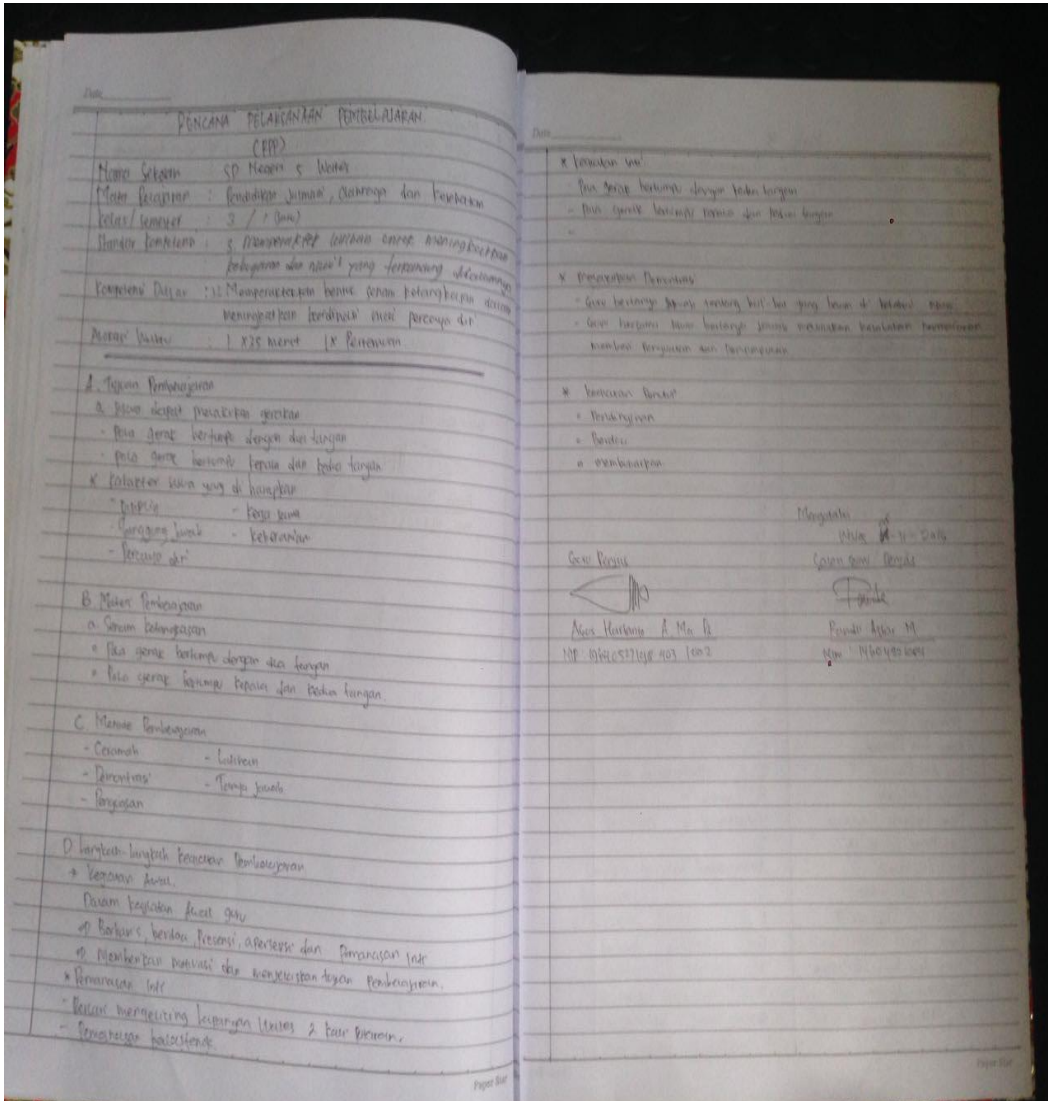 Date
RENCANA PELAKSANAAN PEMBELAJARAN
(RPP)
Nama Sekolah : SD Negeri 5 Wates
Mata Pelajaran : Pendidikan Jasmani, Olahraga dan Kesehatan
Kelas/Semester : 3 / 1 (satu)
Standar Kompetensi : 3. Mempraktekkan latihan untuk meningkatkan
kebugaran dan nilai-nilai yang terkandung didalamnya
Kompetensi Dasar : Mempraktekkan bentuk senam ketangkasan dalam
meningkatkan koordinasi percaya diri
Alokasi Waktu : 1 x 35 menit 1x Pertemuan
A. Tujuan Pembelajaran
a. Siswa dapat melakukan gerakan
- Pola gerak bertumpu dengan dua tangan
- pola gerak bertumpu kepala dan kedua tangan
* Karakter siswa yang di harapkan
- Disiplin - Kerja sama
- Tanggung Jawab - Keberanian
- Percaya diri
B. Materi Pembelajaran
a. Senam ketangkasan
Pola gerak bertumpu dengan dua tangan
Pola gerak bertumpu kepala dan kedua tangan.
C. Metode Pembelajaran
- Ceramah - Latihan
- Demontrasi - Tanya jawab
- Penugasan
D. Langkah-langkah Kegiatan Pembelajaran
* Kegiatan Awal.
Dalam kegiatan Awal guru
Berbaris, berdoa, Presensi, apersepsi dan Pemanasan Inti
Memberikan motivasi dan menjelaskan tujuan Pembelajaran.
* Pemanasan Inti
- Berlari mengelilingi lapangan 2 kali
- Pemanasan
Paper Star
Date
* Kegiatan Inti
- Pola gerak bertumpu dengan kedua tangan
- Pola gerak bertumpu kepala dan kedua tangan
-
- Guru bertanya jawab tentang hal-hal yang belum di ketahui siswa
- Guru bersama siswa bertanya jawab meluruskan kesalahan pemahaman
memberi Penguatan dan Penyimpulan
* Kegiatan Penutup
Pendinginan
Berdoa
membubarkan
Mengetahui
Guru Penjas
Calon guru Penjas
Agus
NIP
Paper Star